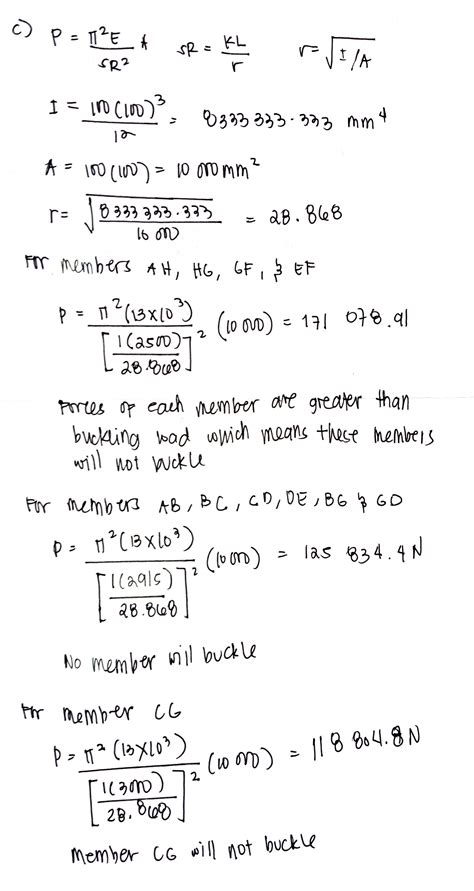 c) P = π²E/SR² A    SR = KL/r    r = √(I/A)
I = 100(100)³/12 = 8333 333.333 mm⁴
A = 100(100) = 10 000 mm²
r = √(8 333 333.333/10 000) = 28.868
For members AH, HG, GF, & EF
P = π²(13x10³)/[1(2500)/28.868]² (10 000) = 171 078.91
Forces of each member are greater than
buckling load which means these members
will not buckle
For members AB, BC, CD, DE, BG & GD
P = π²(13x10³)/[1(2915)/28.868]² (10 000) = 125 834.4 N
No member will buckle
For member CG
P = π²(13x10³)/[1(3000)/28.868]² (10 000) = 118 804.8 N
Member CG will not buckle